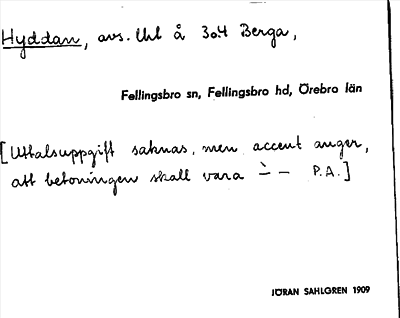 Hyddan, avs. lht å 3o4 Berga,
Fellingsbro sn, Fellingsbro hd, Örebro län
[Uttalsuppgift saknas, men accent anger,
att betoningen skall vara ∸ – P.A.]
JÖRAN SAHLGREN 1909